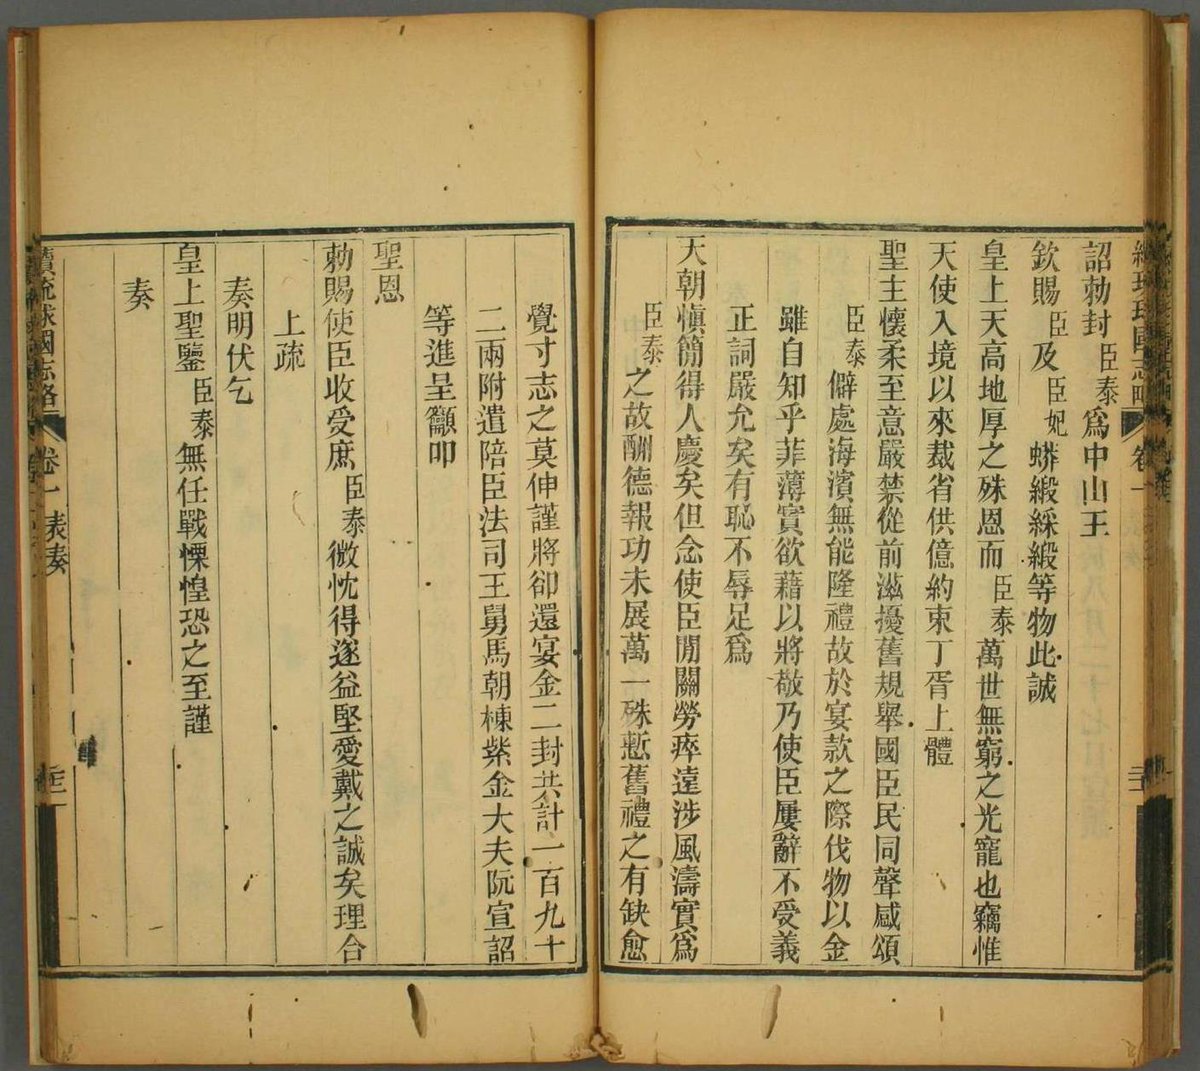 詔勅封臣泰爲中山王
欽賜臣及臣妃蟒緞綵緞等物此誠
皇上天高地厚之殊恩而臣泰萬世無窮之光寵也竊惟
天使入境以來裁省供億約束丁胥上體
聖主懷柔至意嚴禁從前滋擾舊規舉國臣民同聲感頌
臣泰僻處海濱無能隆禮故於宴款之際伐物以金
雖自知乎菲薄實欲藉以將敬乃使臣屢辭不受義
正詞嚴允矣有恥不辱足爲
天朝愼簡得人慶矣但念使臣閒關勞瘁遠涉風濤實爲
臣泰之故酬德報功未展萬一殊慙舊禮之有缺愈
覺寸志之莫伸謹將卻還宴金二封共計一百九十
二兩附遣陪臣法司王舅馬朝棟紫金大夫阮宣詔
等進呈籲叩
聖恩
勅賜使臣收受庶臣泰微忱得遂益堅愛戴之誠矣理合
上疏
奏明伏乞
皇上聖鑒臣泰無任戰慄惶恐之至謹
奏
續琉球國志略 卷一 表奏